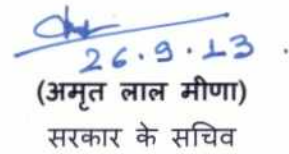 26.9.13
(अमृत लाल मीणा)
सरकार के सचिव